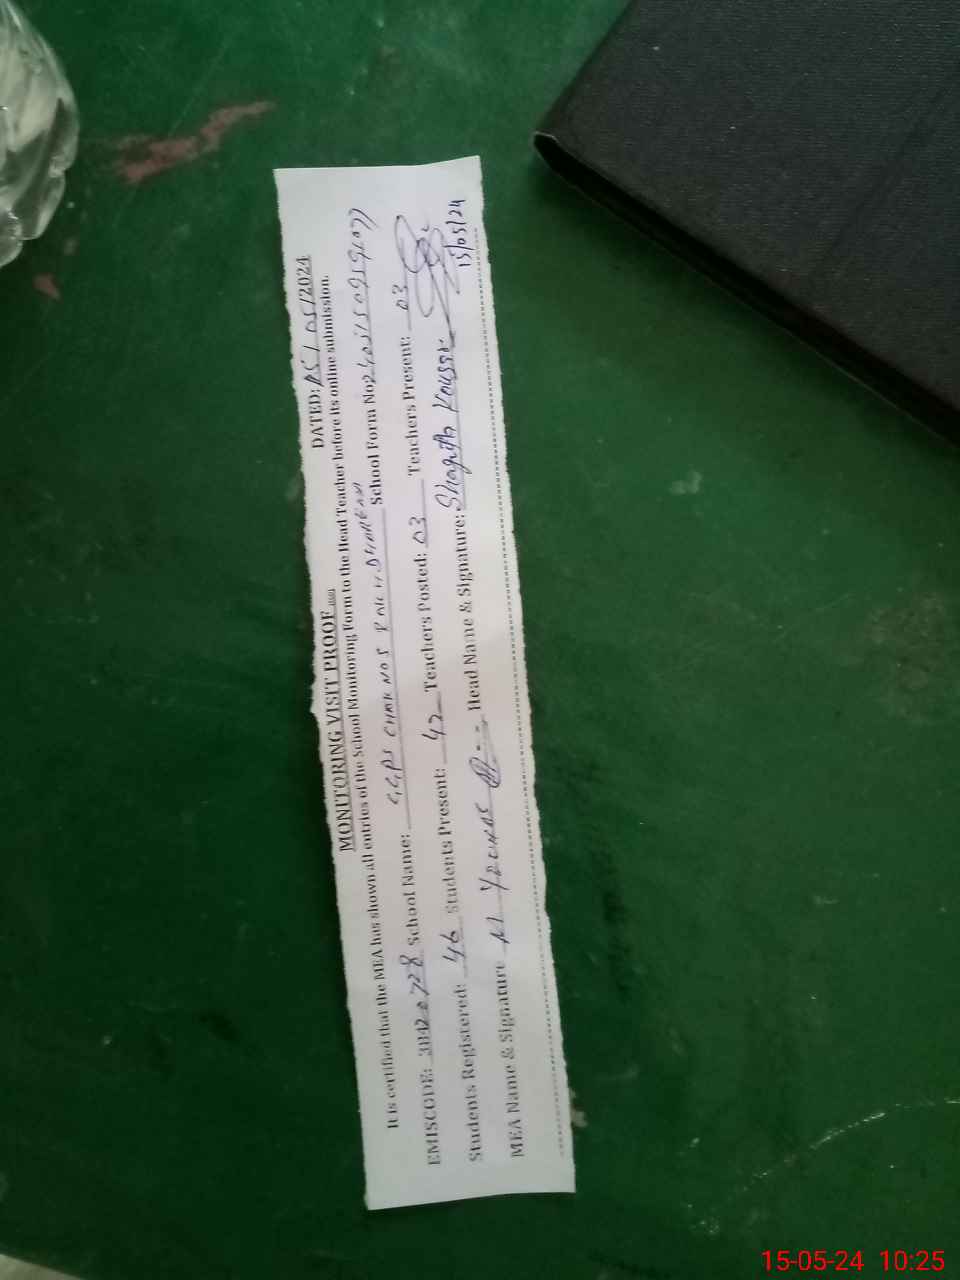 MONITORING VISIT PROOF DATED: 15/05/2024
It is certified that the MEA has shown all entries of the School Monitoring Form to the Head Teacher before its online submission.
EMISCODE: School Name: GGPS CHAK NO 5 School Form No
Students Registered: 46 Students Present: 42 Teachers Posted: 03 Teachers Present: 03
MEA Name & Signature M YOUNAS Head Name & Signature: Kousar
15/05/24
15-05-24 10:25